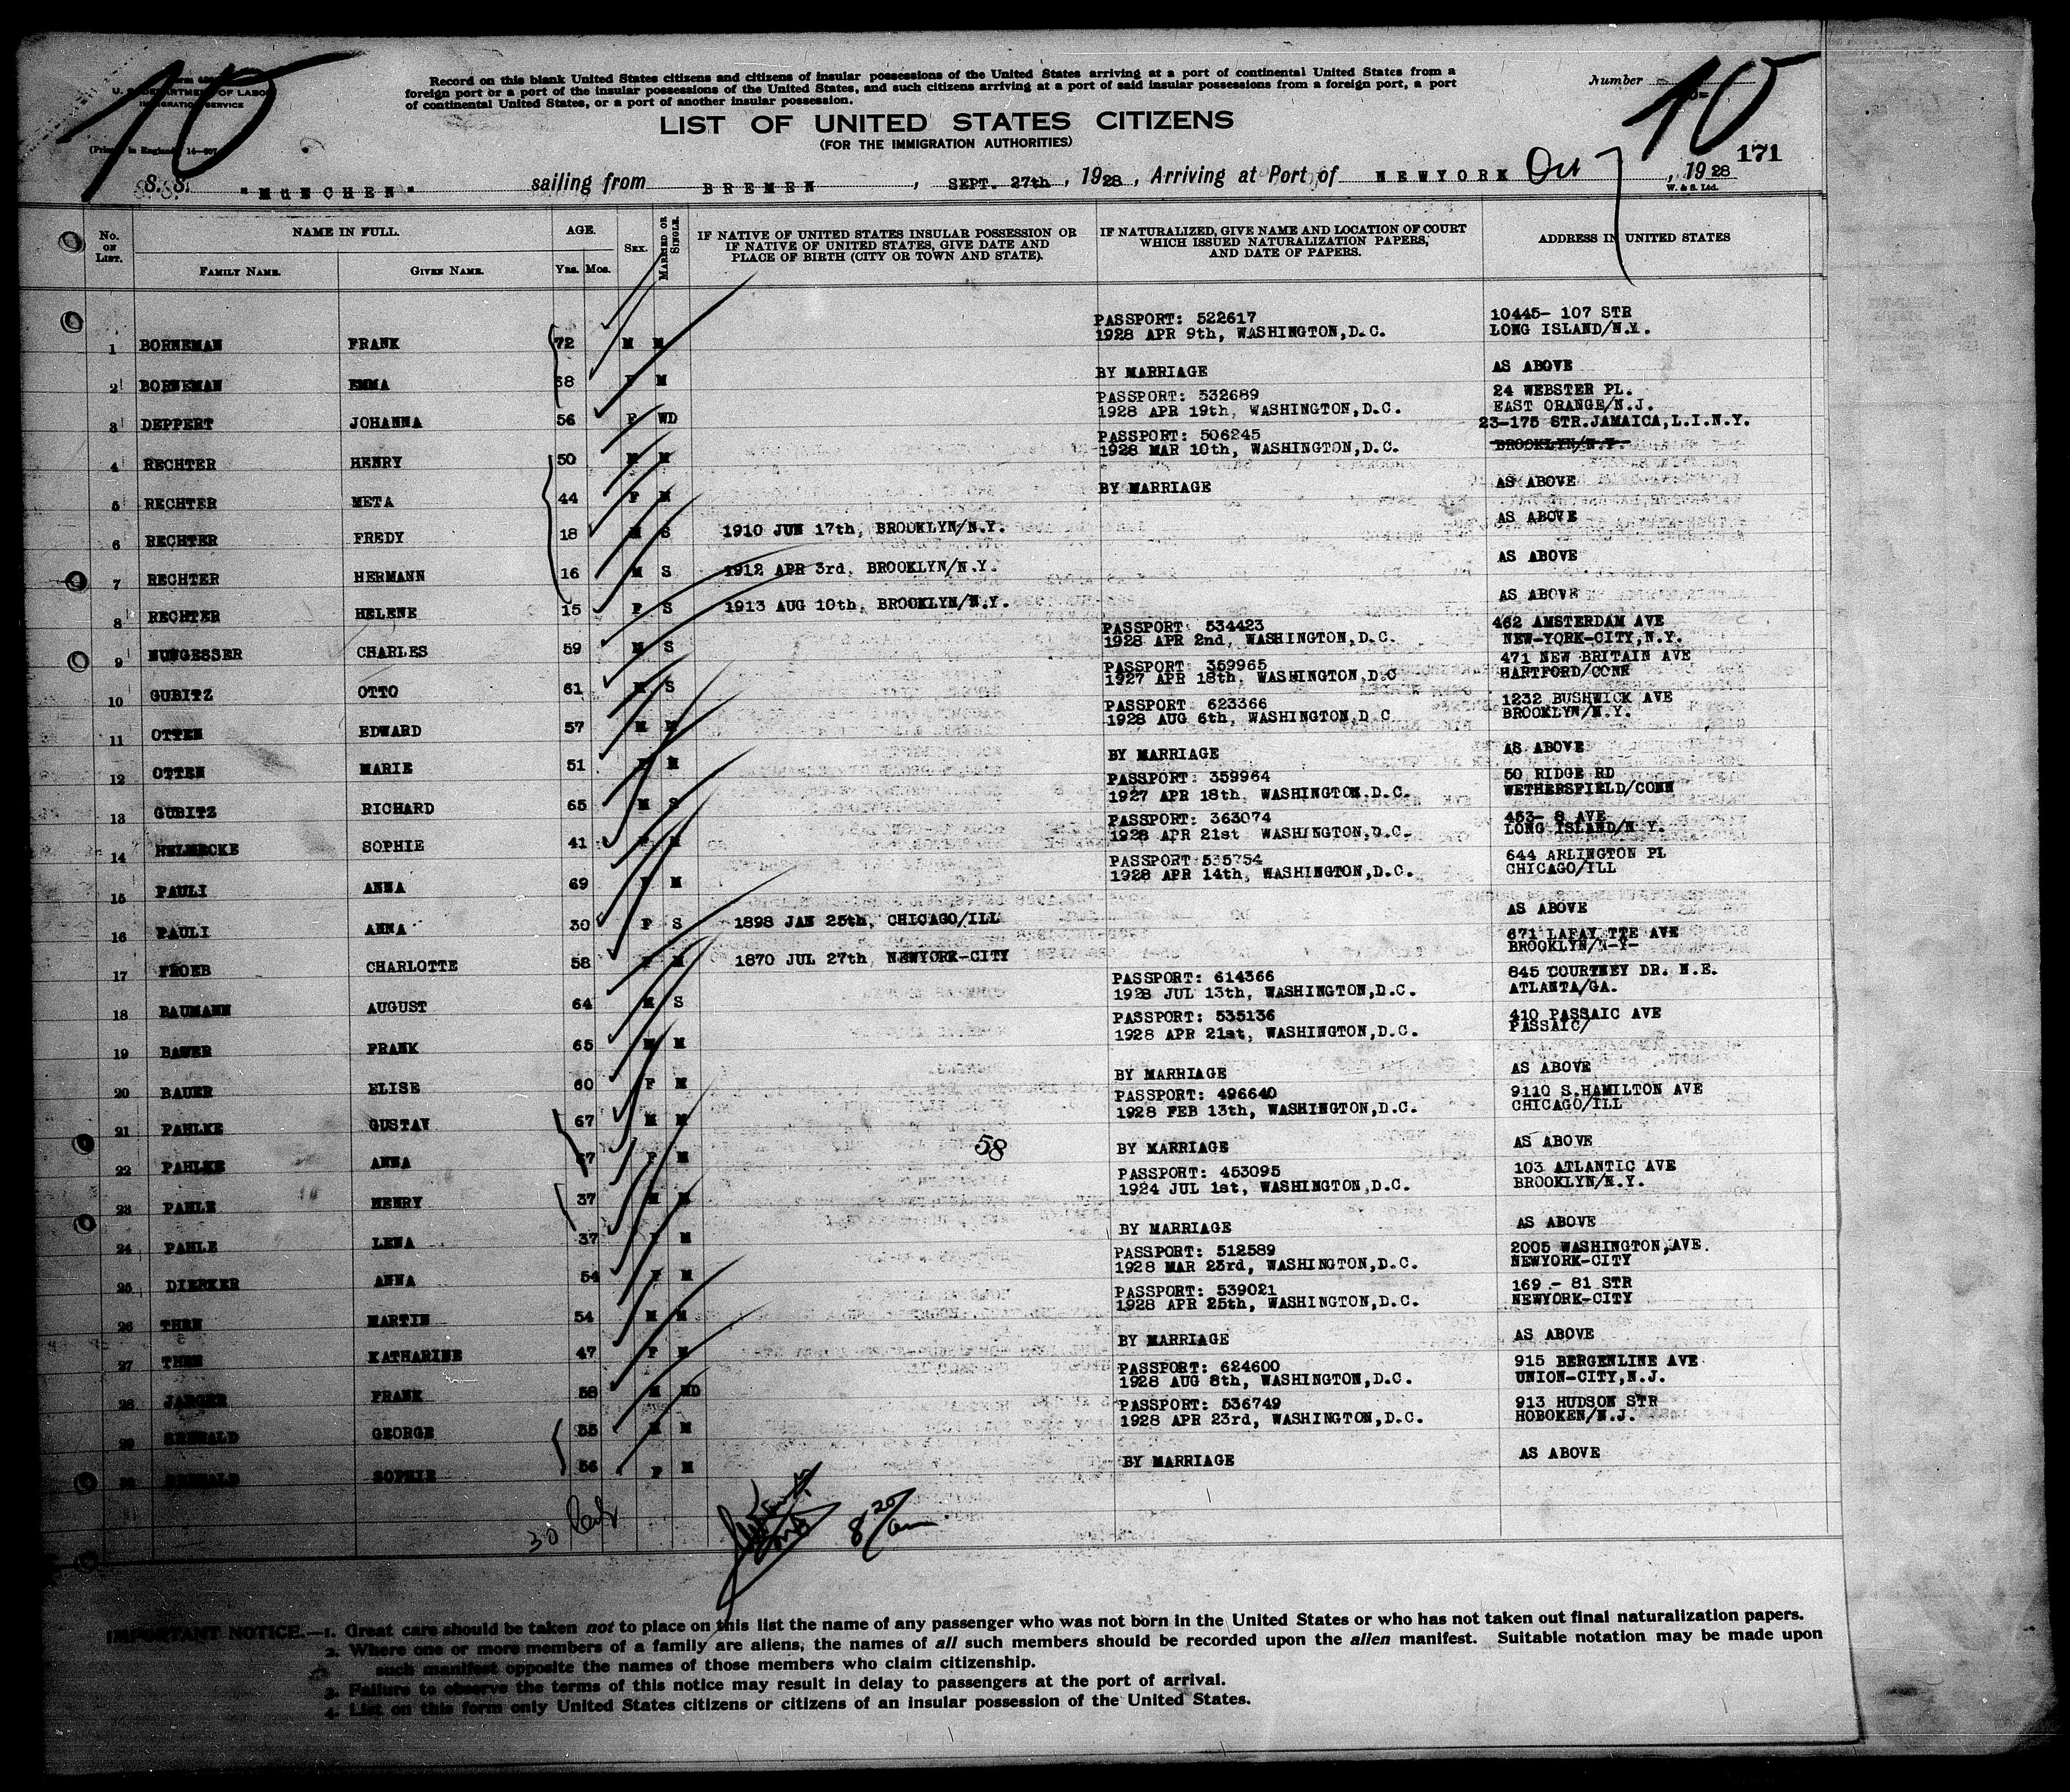 10
U. S. DEPARTMENT OF LABOR
IMMIGRATION SERVICE
Record on this blank United States citizens and citizens of insular possessions of the United States arriving at a port of continental United States from a
foreign port or a port of the insular possessions of the United States, and such citizens arriving at a port of said insular possessions from a foreign port, a port
of continental United States, or a port of another insular possession.
Number 10
LIST OF UNITED STATES CITIZENS
(FOR THE IMMIGRATION AUTHORITIES)
171
S. S. "MUNCHEN" sailing from BREMEN, SEPT. 27th, 1928, Arriving at Port of NEWYORK Oct 7, 1928
W. & S. Ltd.
No. ON LIST. NAME IN FULL. FAMILY NAME. GIVEN NAME. AGE. Yrs. Mos. SEX. MARRIED OR SINGLE. IF NATIVE OF UNITED STATES INSULAR POSSESSION OR IF NATIVE OF UNITED STATES, GIVE DATE AND PLACE OF BIRTH (CITY OR TOWN AND STATE). IF NATURALIZED, GIVE NAME AND LOCATION OF COURT WHICH ISSUED NATURALIZATION PAPERS, AND DATE OF PAPERS. ADDRESS IN UNITED STATES
1 BORNEMAN FRANK 72 M M PASSPORT: 522617 1928 APR 9th, WASHINGTON,D.C. 10445- 107 STR LONG ISLAND/N.Y.
2 BORNEMAN EMMA 68 F M BY MARRIAGE AS ABOVE
3 DEPPERT JOHANNA 56 F WD PASSPORT: 532689 1928 APR 19th, WASHINGTON,D.C. 24 WEBSTER PL. EAST ORANGE/N.J.
4 RECHTER HENRY 50 M M PASSPORT: 506245 1928 MAR 10th, WASHINGTON,D.C. 23-175 STR.JAMAICA,L.I.N.Y. BROOKLYN/N.Y.
5 RECHTER META 44 F M BY MARRIAGE AS ABOVE
6 RECHTER FREDY 18 M S 1910 JUN 17th, BROOKLYN/N.Y. AS ABOVE
7 RECHTER HERMANN 16 M S 1912 APR 3rd, BROOKLYN/N.Y. AS ABOVE
8 RECHTER HELENE 15 F S 1913 AUG 10th, BROOKLYN/N.Y. AS ABOVE
9 NUNGESSER CHARLES 59 M S PASSPORT: 534423 1928 APR 2nd, WASHINGTON,D.C. 462 AMSTERDAM AVE NEW-YORK-CITY,N.Y.
10 GUBITZ OTTO 61 M S PASSPORT: 359965 1927 APR 18th, WASHINGTON,D.C 471 NEW BRITAIN AVE HARTFORD/CONN
11 OTTEN EDWARD 57 M M PASSPORT 623366 1928 AUG 6th, WASHINGTON,D C 1232 BUSHWICK AVE BROOKLYN/N.Y.
12 OTTEN MARIE 51 F M BY MARRIAGE AS ABOVE
13 GUBITZ RICHARD 65 M S PASSPORT: 359964 1927 APR 18th, WASHINGTON.D.C. 50 RIDGE RD WETHERSFIELD/CONN
14 HELMECKE SOPHIE 41 F M PASSPORT: 363074 1928 APR 21st WASHINGTON,D.C. 453- 8 AVE LONG ISLAND/N Y.
15 PAULI ANNA 69 F M PASSPORT 535754 1928 APR 14th, WASHINGTON,D.C. 644 ARLINGTON PL CHICAGO/ILL
16 PAULI ANNA 30 F S 1898 JAN 25th, CHICAGO/ILL AS ABOVE
17 FROEB CHARLOTTE 58 F M 1870 JUL 27th, NEWYORK-CITY 671 LAFAY TTE AVE BROOKLYN/N-Y-
18 BAUMANN AUGUST 64 M S PASSPORT: 614366 1928 JUL 13th, WASHINGTON,D.C. 845 COURTNEY DR. N.E. ATLANTA/GA.
19 BAUER FRANK 65 M M PASSPORT: 535136 1928 APR 21st, WASHINGTON,D.C. 410 PASSAIC AVE PASSAIC/
20 BAUER ELISE 60 F M BY MARRIAGE AS ABOVE
21 PAHLKE GUSTAV 67 M M PASSPORT: 496640 1928 FEB 13th, WASHINGTON,D.C. 9110 S.HAMILTON AVE CHICAGO/ILL
22 PAHLKE ANNA 67 F M 58 BY MARRIAGE AS ABOVE
23 PAHLE HENRY 37 M M PASSPORT: 453095 1924 JUL 1st, WASHINGTON,D.C. 103 ATLANTIC AVE BROOKLYN/N.Y.
24 PAHLE LENA 37 F M BY MARRIAGE AS ABOVE
25 DIERKER ANNA 54 F M PASSPORT: 512589 1928 MAR 23rd, WASHINGTON,D.C. 2005 WASHINGTON,AVE. NEWYORK-CITY
26 THEN MARTIN 54 M M PASSPORT: 539021 1928 APR 25th, WASHINGTON,D.C. 169 - 81 STR NEWYORK-CITY
27 THEN KATHARINE 47 F M BY MARRIAGE AS ABOVE
28 JAEGER FRANK 58 M WD PASSPORT: 624600 1928 AUG 8th, WASHINGTON,D.C. 915 BERGENLINE AVE UNION-CITY,N.J.
29 GEORGE 55 M M PASSPORT: 536749 1928 APR 23rd, WASHINGTON,D.C. 913 HUDSON STR HOBOKEN/N.J.
30 SOPHIE 56 F M BY MARRIAGE AS ABOVE
30
8 20/am
IMPORTANT NOTICE.—1. Great care should be taken not to place on this list the name of any passenger who was not born in the United States or who has not taken out final naturalization papers.
2. Where one or more members of a family are aliens, the names of all such members should be recorded upon the alien manifest. Suitable notation may be made upon
such manifest opposite the names of those members who claim citizenship.
3. Failure to observe the terms of this notice may result in delay to passengers at the port of arrival.
4. List on this form only United States citizens or citizens of an insular possession of the United States.